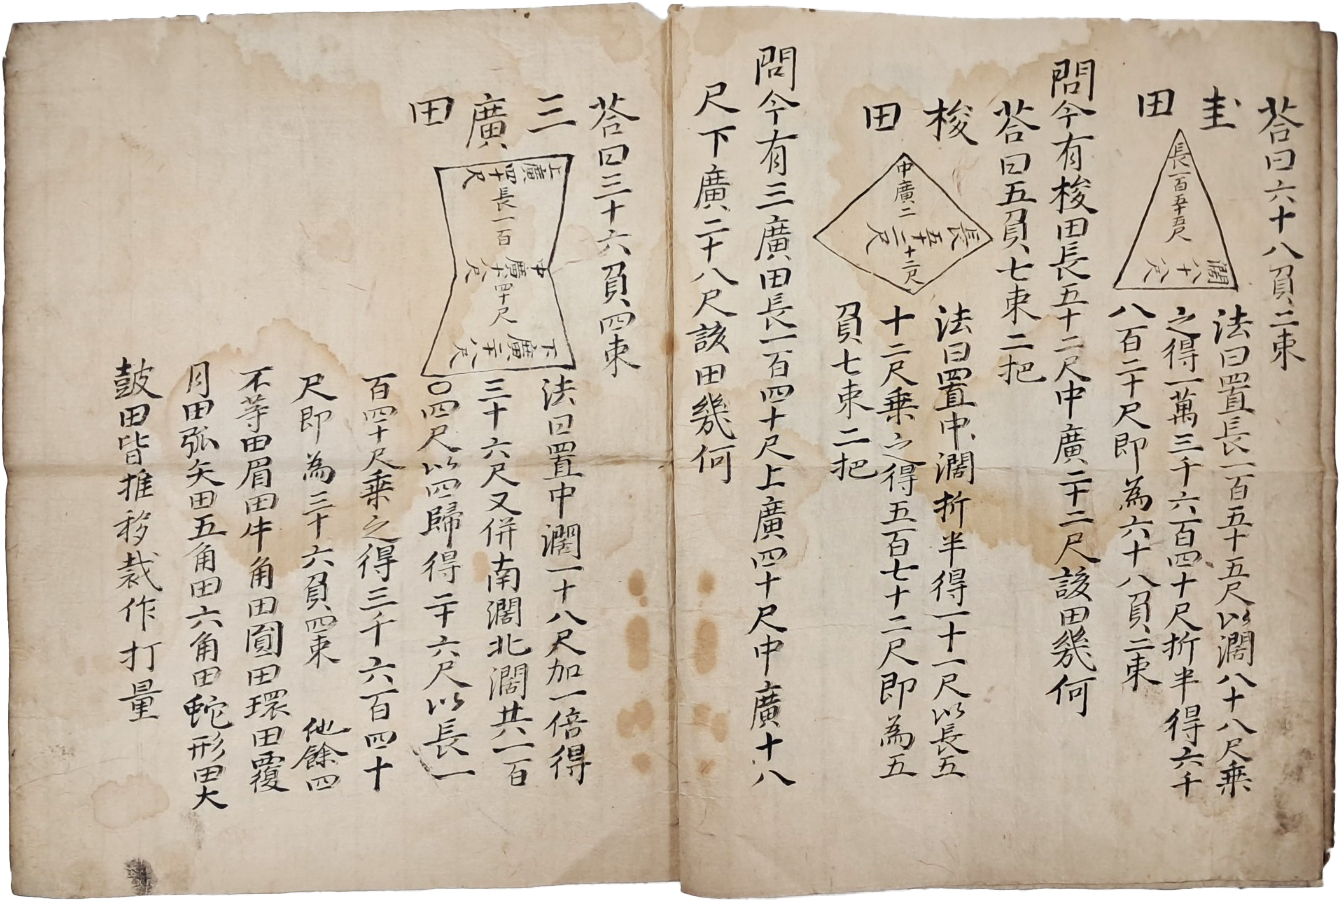 荅曰六十八負二束
圭田
長一百五十五尺
濶八十八尺
法曰置長一百五十五尺以濶八十八尺乘
之得一萬三千六百四十尺折半得六千
八百二十尺即為六十八負二束
問今有梭田長五十二尺中廣二十二尺該田幾何
荅曰五負七束二把
梭田
中廣二十二尺
長五十二尺
法曰置中濶折半得一十一尺以長五
十二尺乘之得五百七十二尺即為五
負七束二把
問今有三廣田長一百四十尺上廣四十尺中廣十八
尺下廣二十八尺該田幾何
荅曰三十六負四束
三廣田
上廣四十尺
長一百四十尺
中廣十八尺
下廣二十八尺
法曰置中濶一十八尺加一倍得
三十六尺又併南濶北濶共一百
〇四尺以四歸得二十六尺以長一
百四十尺乘之得三千六百四十
尺即為三十六負四束 他餘四
不等田眉田牛角田圓田環田覆
月田弧矢田五角田六角田蛇形田大
鼓田皆推移裁作打量